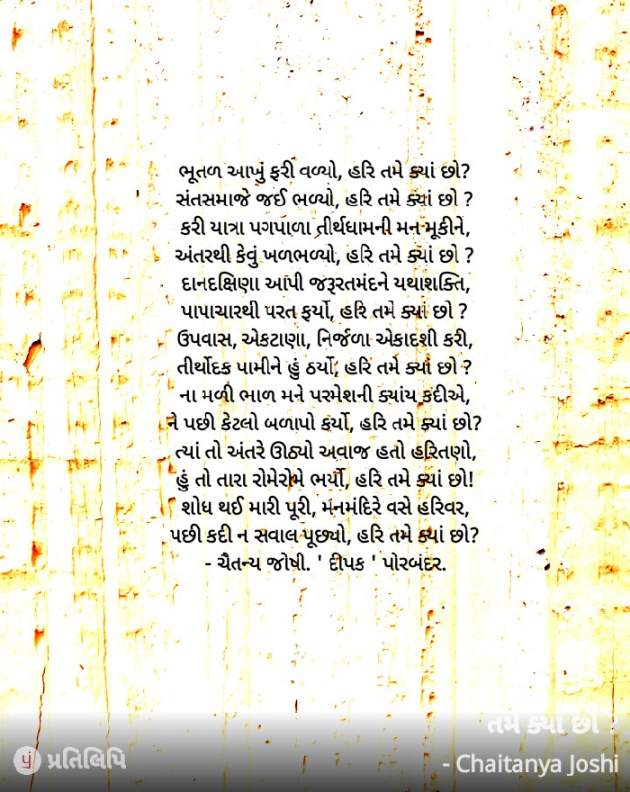 ભૂતળ આખું ફરી વળ્યો, હરિ તમે ક્યાં છો?
સંતસમાજે જઈ ભળ્યો, હરિ તમે ક્યાં છો ?
કરી યાત્રા પગપાળા તીર્થધામની મન મૂકીને,
અંતરથી કેવું ખળભળ્યો, હરિ તમે ક્યાં છો ?
દાનદક્ષિણા આપી જરૂરતમંદને યથાશક્તિ,
પાપાચારથી પરત ફર્યો, હરિ તમે ક્યાં છો ?
ઉપવાસ, એકટાણા, નિર્જળા એકાદશી કરી,
તીર્થોદક પામીને હું ઠર્યો, હરિ તમે ક્યાં છો ?
ના મળી ભાળ મને પરમેશની ક્યાંય કદીએ,
ને પછી કેટલો બળાપો કર્યો, હરિ તમે ક્યાં છો?
ત્યાં તો અંતરે ઊઠ્યો અવાજ હતો હરિતણો,
હું તો તારા રોમેરોમે ભર્યો, હરિ તમે ક્યાં છો!
શોધ થઈ મારી પૂરી, મનમંદિરે વસે હરિવર,
પછી કદી ન સવાલ પૂછ્યો, હરિ તમે ક્યાં છો?
- ચૈતન્ય જોષી. ' દીપક ' પોરબંદર.
તમે ક્યાં છો ?
પ્રતિલિપિ
- Chaitanya Joshi